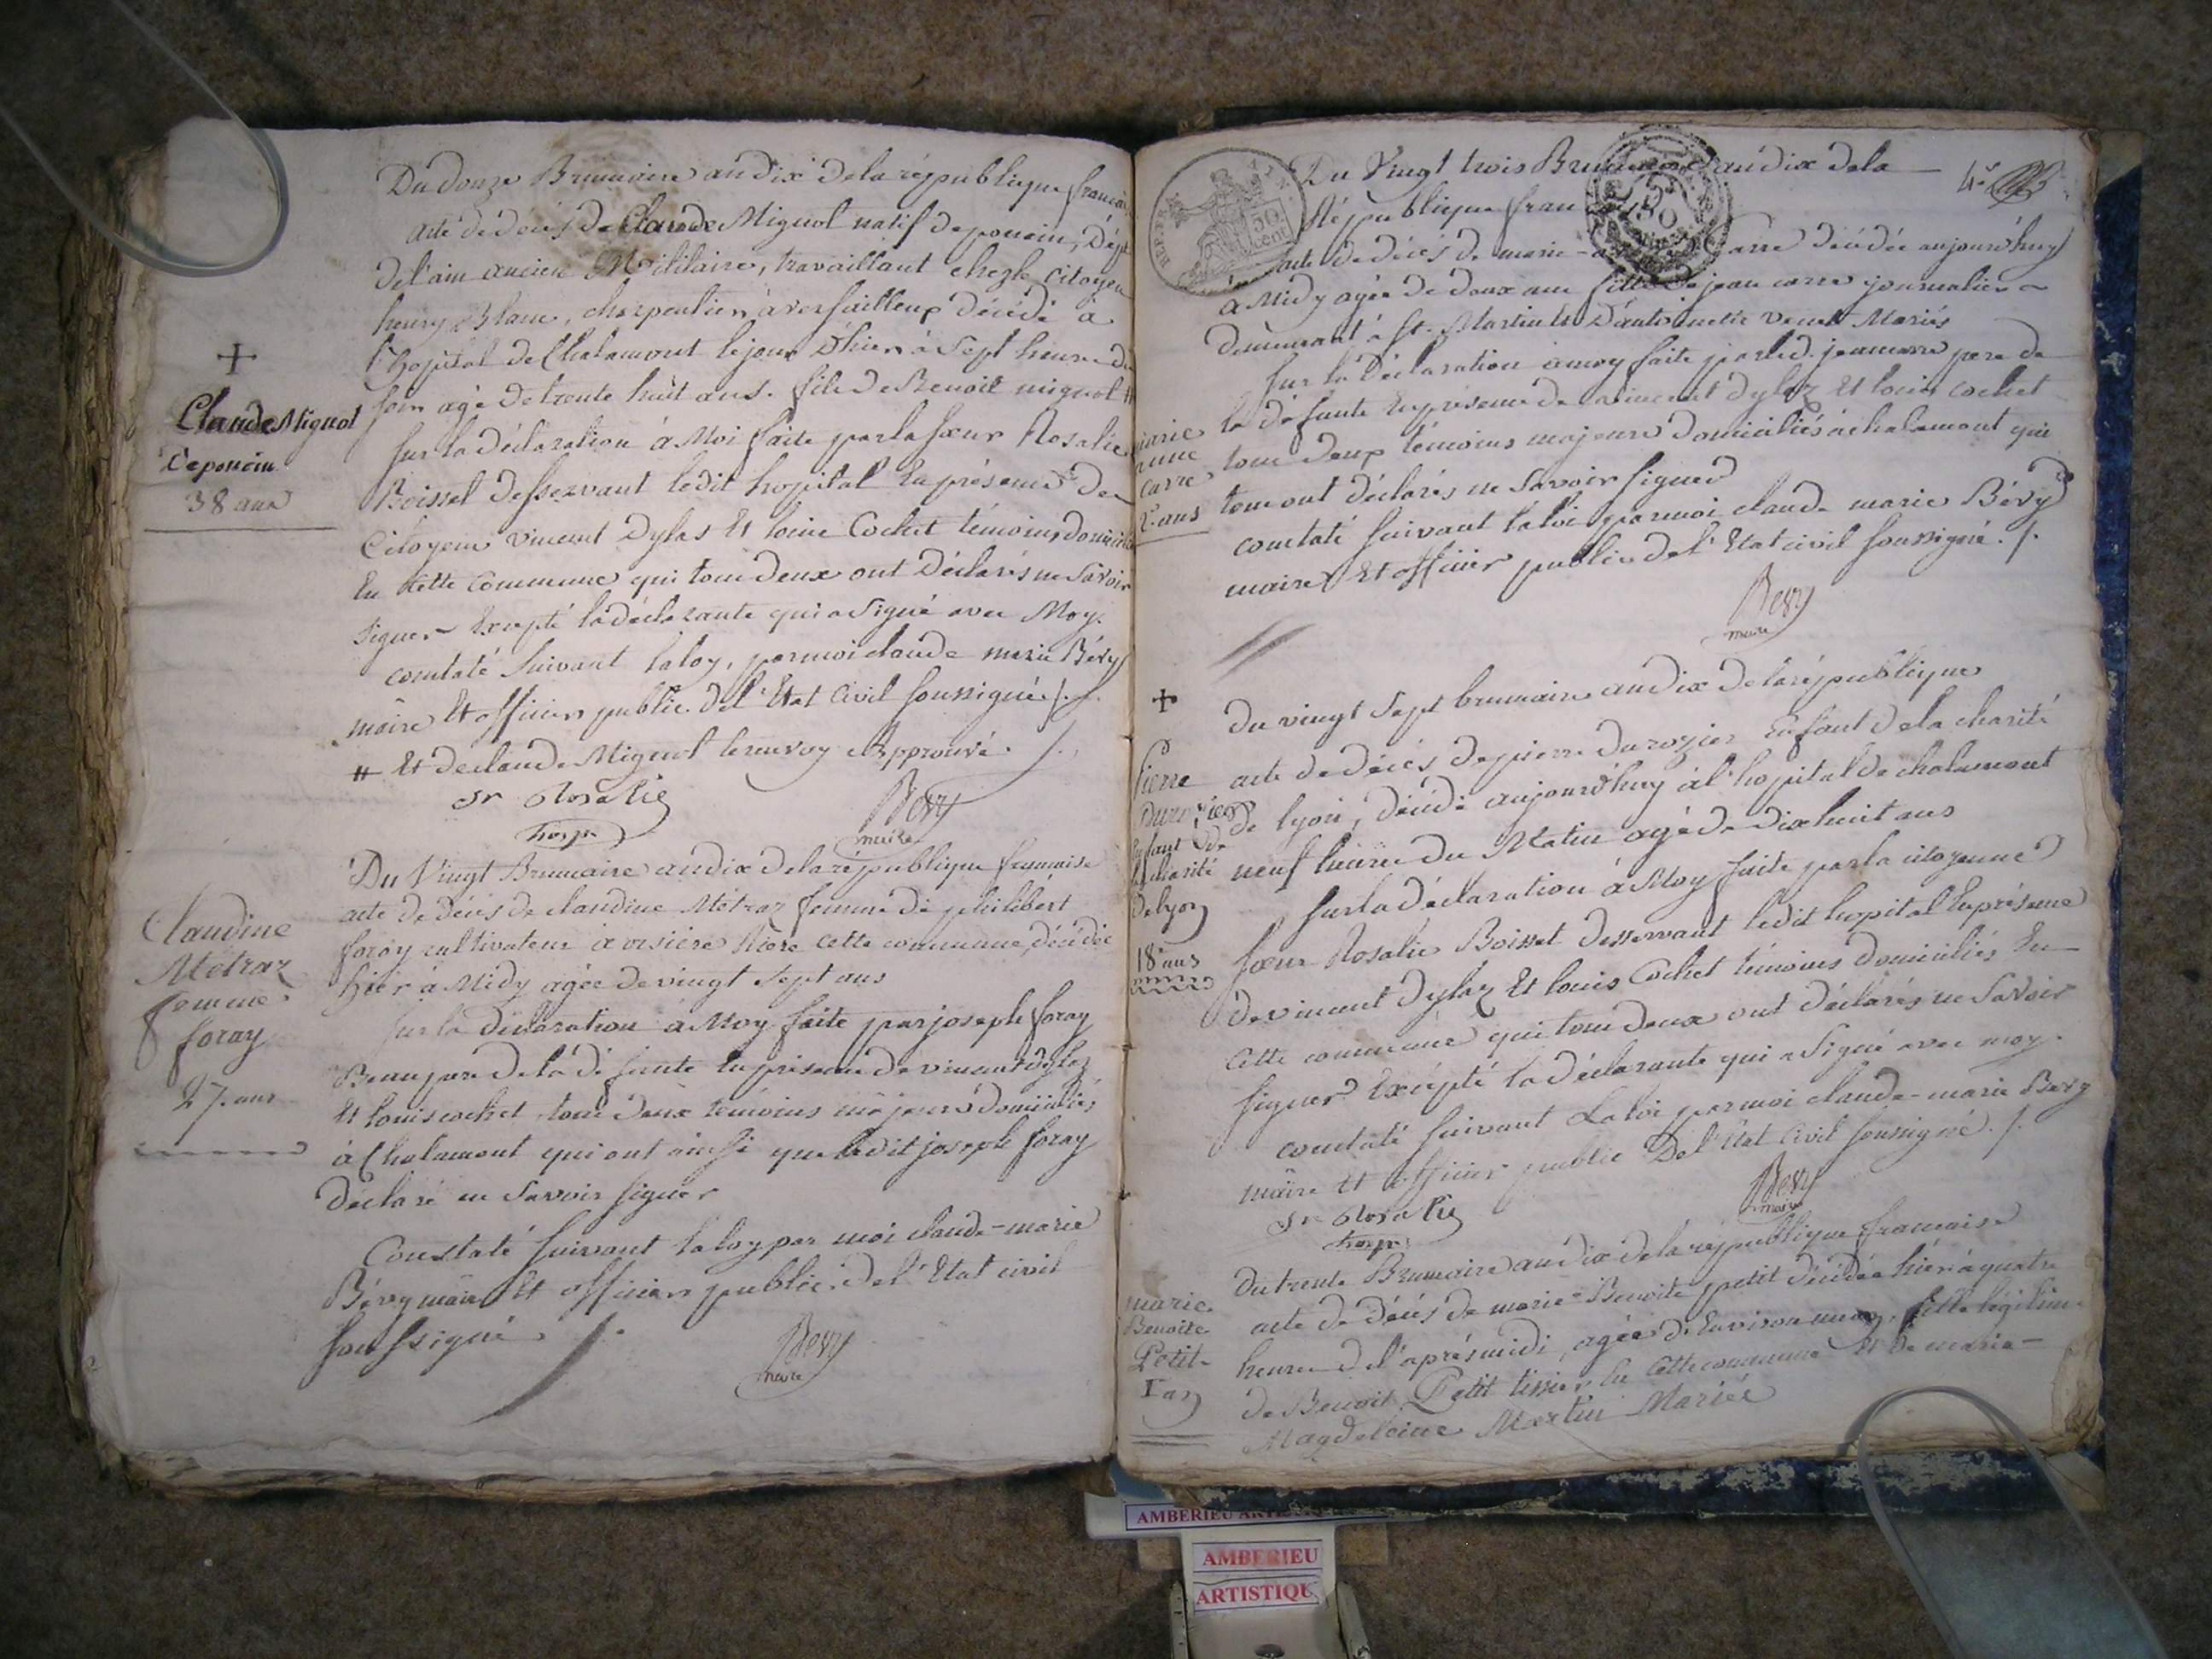 Du douze Brumaire an dix de la république française
acte de décès de Claude Mignol natif de poncin, Dépt
de l'ain ancien Militaire, travaillant chez le Citoyen
henry Blanc, charpentier à versailleux décédé à
l'hopital de Chalamont le jour d'hier à Sept heures du
soir agé de trente huit ans. fils de Benoit mignol #
sur la déclaration à Moi faite par la sœur Rosalie
Boissel desservant ledit hopital En présence de
Citoyens vincent Dylas Et louis Cochet témoins domiciliés
En Cette Commune qui tous deux ont Déclarés ne Savoir
signer Excepté la déclarante qui a Signé avec Moy.
constaté suivant la loy, par moi claude marie Bévy
maire Et officier public de l'Etat Civil soussigné ./.
# Et de claude Mignol le renvoy Approuvé. /.
Sr Rosalie
hosp.
Bévy
maire
+
Claude Mignol
De poncin
38 ans
Du Vingt Brumaire an dix de la république francaise
acte de décès de claudine Métraz femme de philibert
foray cultivateur à visière Riere cette commune, décédée
hier à Midy agée de vingt Sept ans
sur la déclaration à Moy faite par joseph foray
Beaupere de la défunte En présence de vincent dylaz
Et louis cochet tous deux témoins majeurs domiciliés
à Chalamont qui ont ainsi que ledit joseph foray
déclaré ne Savoir signer
Constaté suivant la loy par moi claude-marie
Bévy maire Et officier public de l'Etat civil
soussigné /.
Bévy
maire
Claudine
Métraz
femme
foray
27. ans
4e
REP. FRA.
50
cent
Du Vingt trois Brumaire an dix de la
République fran
acte de décès de marie- carre décédée aujourd'huy
à Midy agée de deux ans fille de jean carre journalier
demeurant à St. Martin Et D'antoinette venet Mariés
sur la déclaration à moy faite par led. jean carre pere de
la défunte En présence de vincent dylaz Et louis cochet
tous deux témoins majeurs domiciliés à chalamont qui
tous ont déclarés ne savoir signer
constaté suivant la loi par moi claude marie Bévy
maire Et officier public de l'Etat civil soussigné ./.
Bévy
maire
marie
anne
carre
2. ans
+
du vingt Sept brumaire an dix de la république
acte de décès de pierre durozier Enfant de la charité
de lyon, décédé aujourd'huy à l'hopital de chalamont
neuf heures du Matin agé de dix huit ans
sur la déclaration à Moy faite par la citoyenne
sœur Rosalie Boissel desservant ledit hopital En présence
de vincent Dylaz Et louis Cochet témoins domiciliés En
Cette commune qui tous deux ont déclarés ne Savoir
signer Excepté la déclarante qui a Signé avec moy.
constaté suivant La loi par moi claude-marie Bevy
maire Et officier public De l'Etat Civil soussigné ./.
Sr Rosalie
hosp.
Bévy
maire
Pierre
durozier
Enfant de
la charité
de lyon
18 ans
du trente Brumaire an dix de la république francaise
acte de décès de marie Benoite petit décédée hier à quatre
heures de l'après midi, agée d'Environ un an, fille légitime
de Benoit Petit tissier En Cette commune Et de marie-
Magdeleine Martin Mariés
marie
Benoite
Petit
I an
AMBERIEU ARTISTIQUE
AMBERIEU
ARTISTIQU